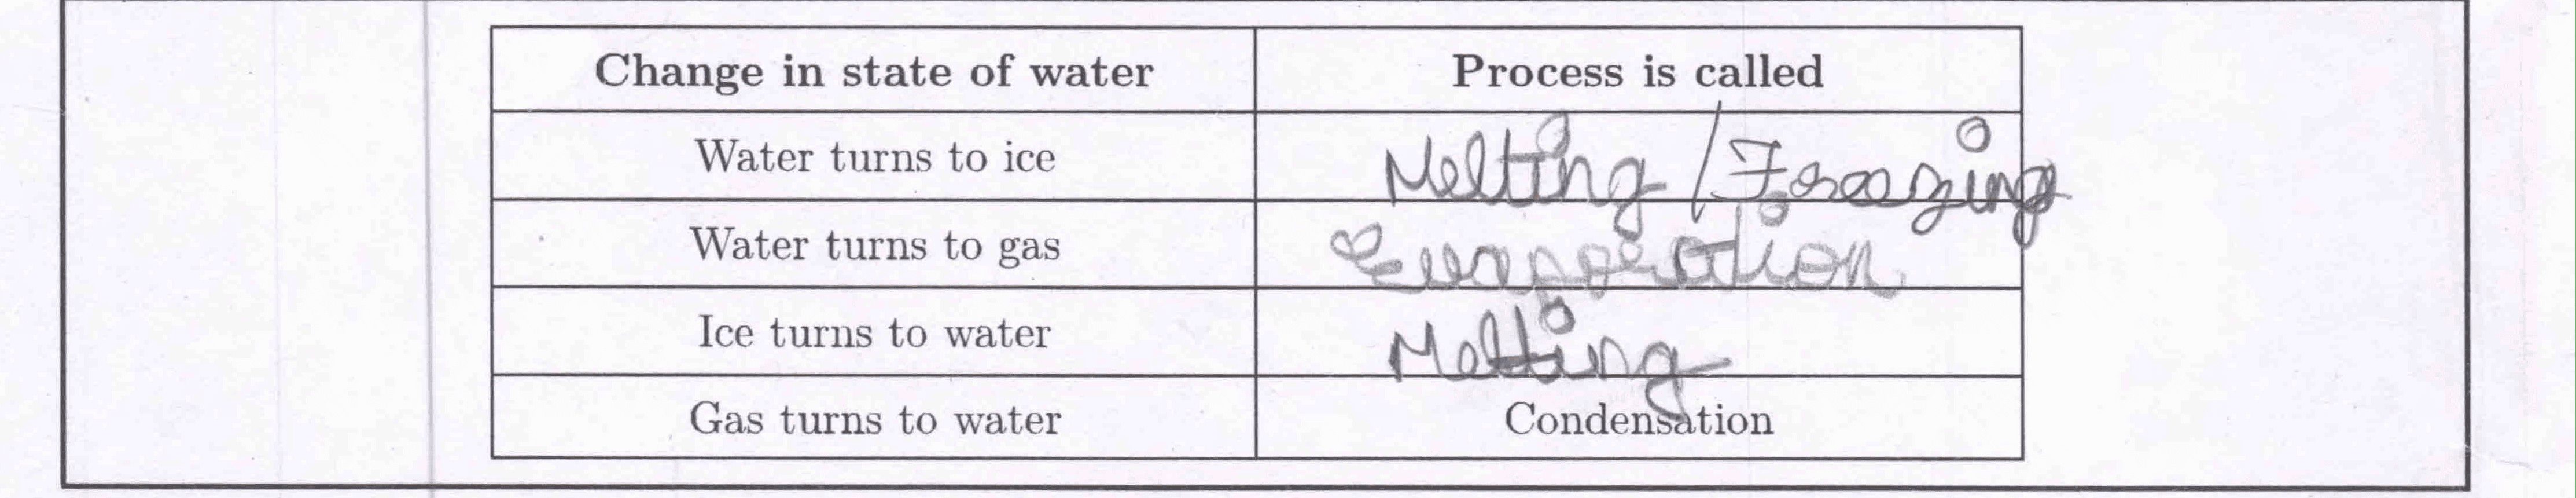 Change in state of water Process is called
Water turns to ice Melting / Freezing
Water turns to gas Evaporation
Ice turns to water Melting
Gas turns to water Condensation